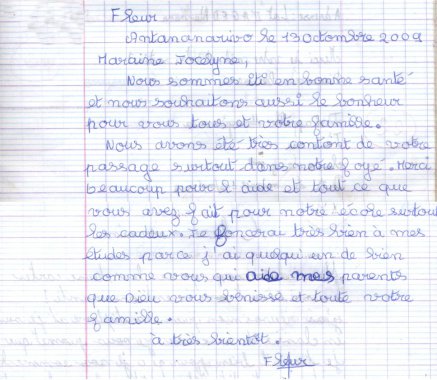 Fleur
Antananarivo le 13 Octombre 2009
Maraine Jocelyne,
Nous sommes éti en bonne santé
et nous souhaitons aussi le bonheur
pour vous tous et votre famille.
Nous avons été très contont de votre
passage surtout dans notre foyé. Merci
beaucoup pour l'aide et tout ce que
vous avez fait pour notre école surtout
les cadeux. Je foncerai très bien à mes
études parce j'ai quelqui un de bien
comme vous qui aide mes parents
que Dieu vous bénisse et toute votre
famille.
à très bientôt.
Fleur